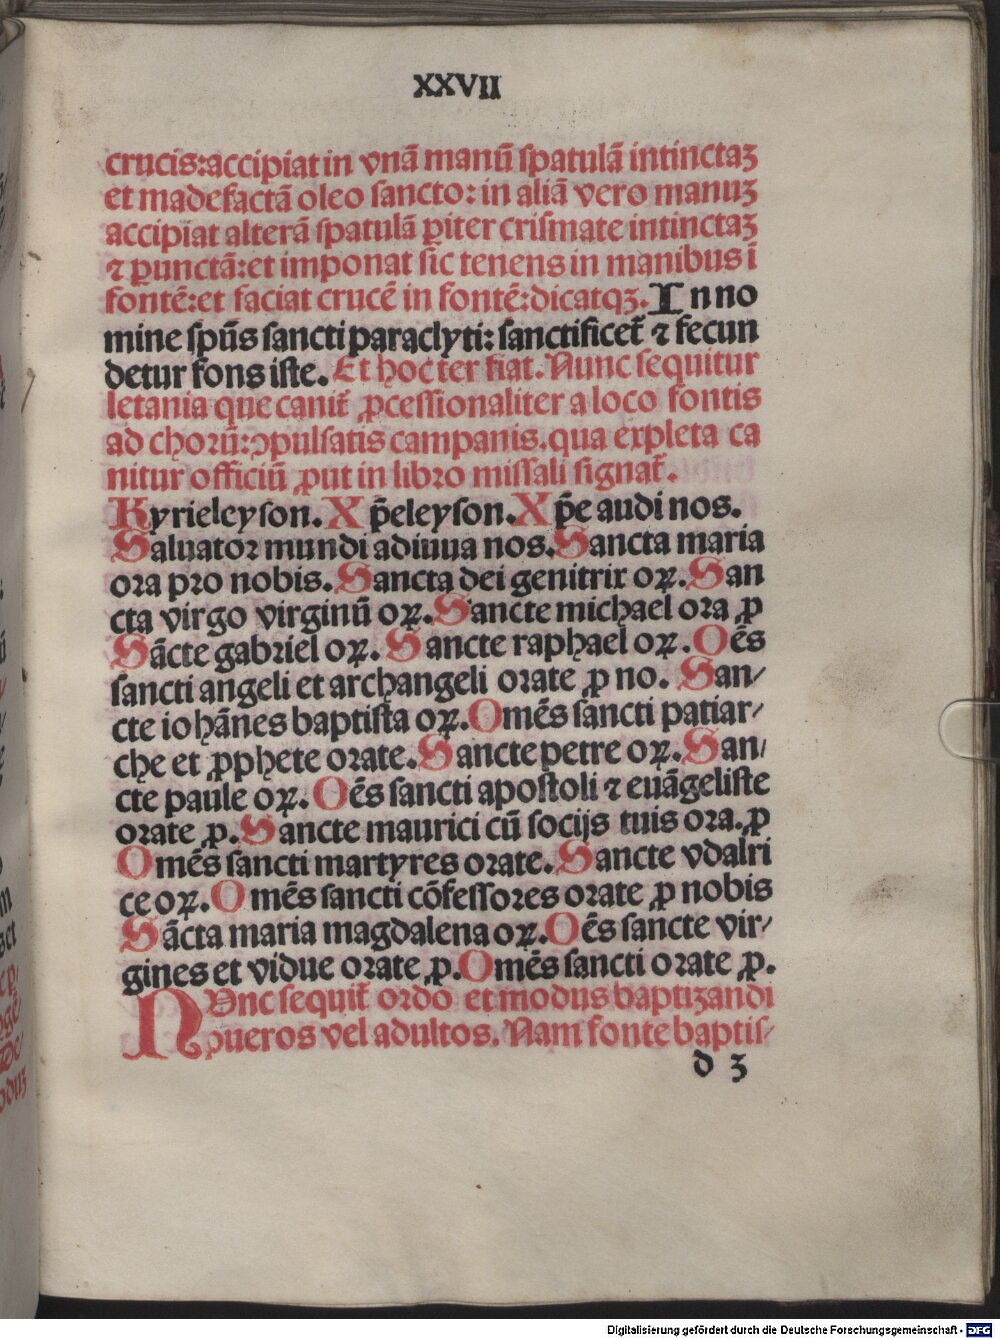 XXVII
crucis:accipiat in vnā manū ſpatulā intinctaꝫ
et madefactā oleo ſancto: in aliā vero manuꝫ
accipiat alterā ſpatulā ꝑiter criſmate intinctaꝫ
⁊ ꝑunctā:et imponat ſic tenens in manibus ī
fontē:et faciat crucē in fontē:dicatqꝫ. In no
mine ſpūs ſancti paraclyti: ſanctificet᷑ ⁊ fecun
detur fons iſte. Et hoc ter fiat. Nunc ſequitur
letania que canit᷑ ꝓceſſionaliter a loco fontis
ad chorū:ↄpulſatis campanis.qua expleta ca
nitur officiū ꝓut in libro miſſali ſignat᷑.
Kyrieleyſon. Xp̄eleyſon. Xp̄e audi nos.
Saluator mundi adiuua nos. Sancta maria
ora pro nobis. Sancta dei genitrix oꝝ. San
cta virgo virginū oꝝ. Sancte michael ora ꝓ
Sācte gabriel oꝝ. Sancte raphael oꝝ. Oēs
ſancti angeli et archangeli orate ꝓ no. San/
cte iohānes baptiſta oꝝ. Omēs ſancti patiar/
che et ꝓphete orate. Sancte petre oꝝ. San/
cte paule oꝝ. Oēs ſancti apoſtoli ⁊ euāgeliſte
orate ꝓ. Sancte maurici cū ſocijs tuis ora. ꝓ
Omēs ſancti martyres orate. Sancte vdalri
ce oꝝ. Omēs ſancti cōfeſſores orate ꝓ nobis
Sācta maria magdalena oꝝ. Oēs ſancte vir/
gines et vidue orate ꝓ. Omēs ſancti orate ꝓ.
NVnc ſequit᷑ ordo et modus baptizandi
pueros vel adultos. Nam fonte baptiſ/
d 3
Digitalisierung gefördert durch die Deutsche Forschungsgemeinschaft - DFG